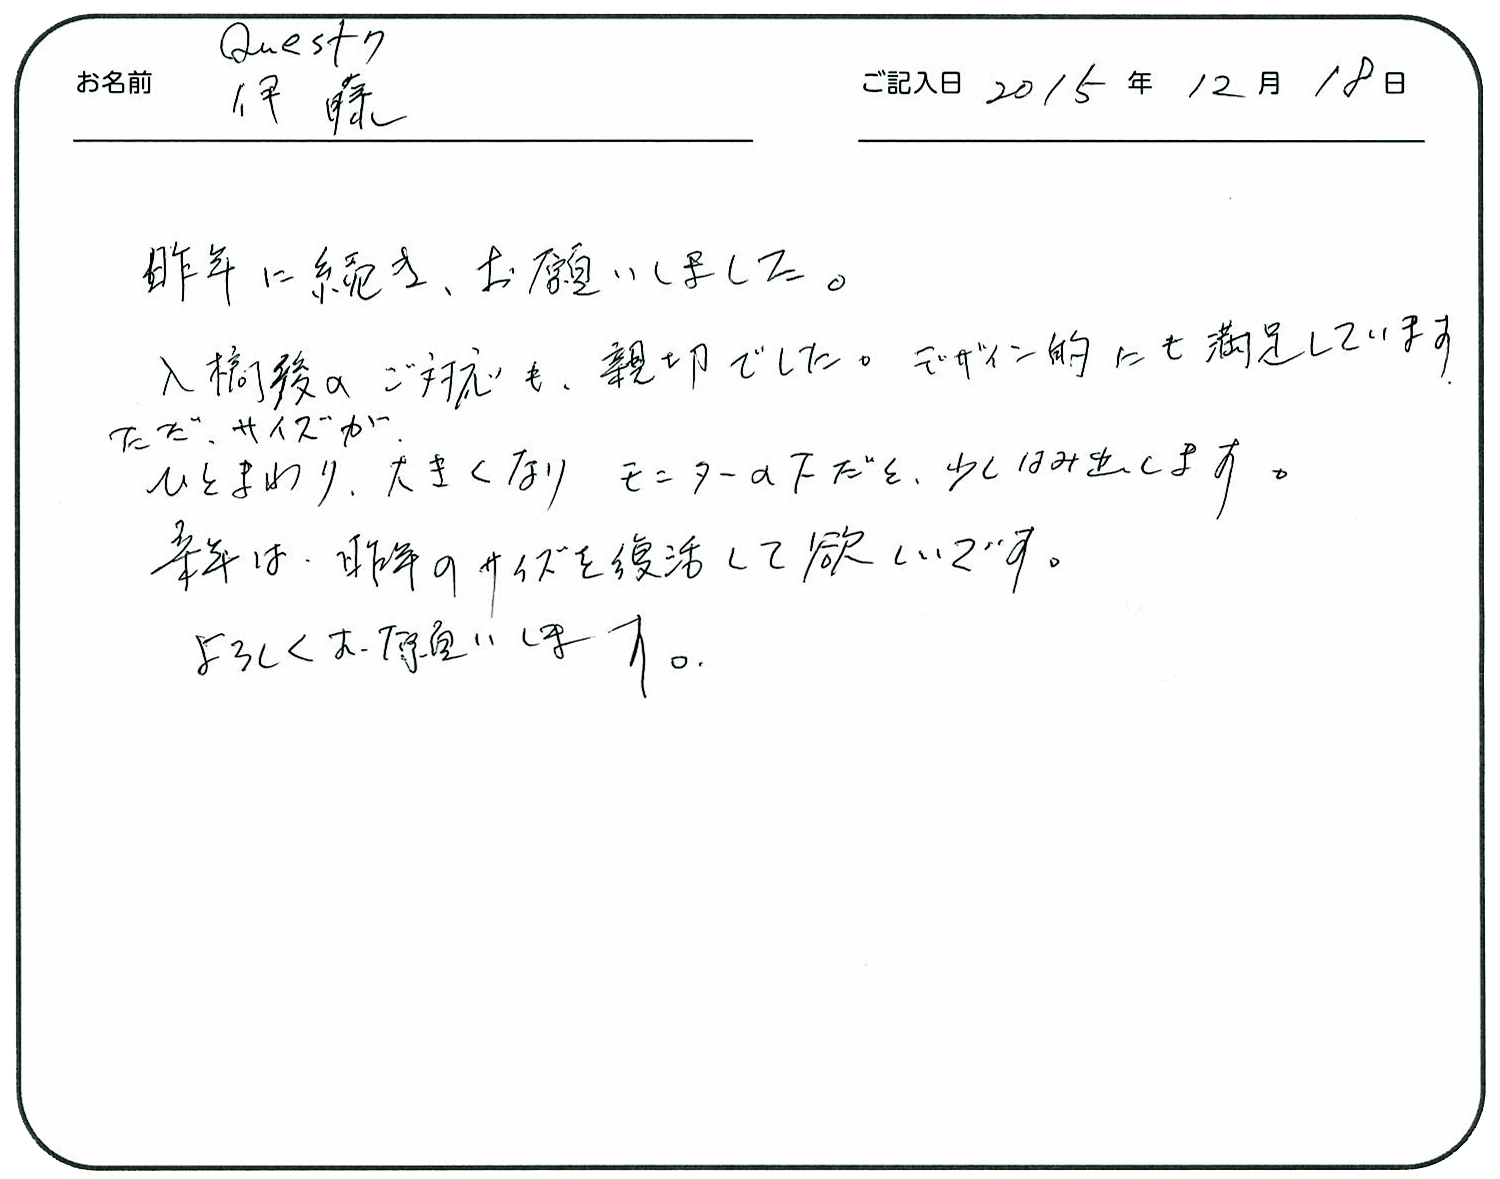 Quest7
お名前 伊藤
ご記入日 2015年 12月 18日
昨年に続き、お願いしました。
入稿後のご対応も、親切でした。デザイン的にも満足しています。
ただ、サイズが、
ひとまわり、大きくなり モニターの下だと、少しはみ出します。
来年は、昨年のサイズを復活して欲しいです。
よろしくお願いします。